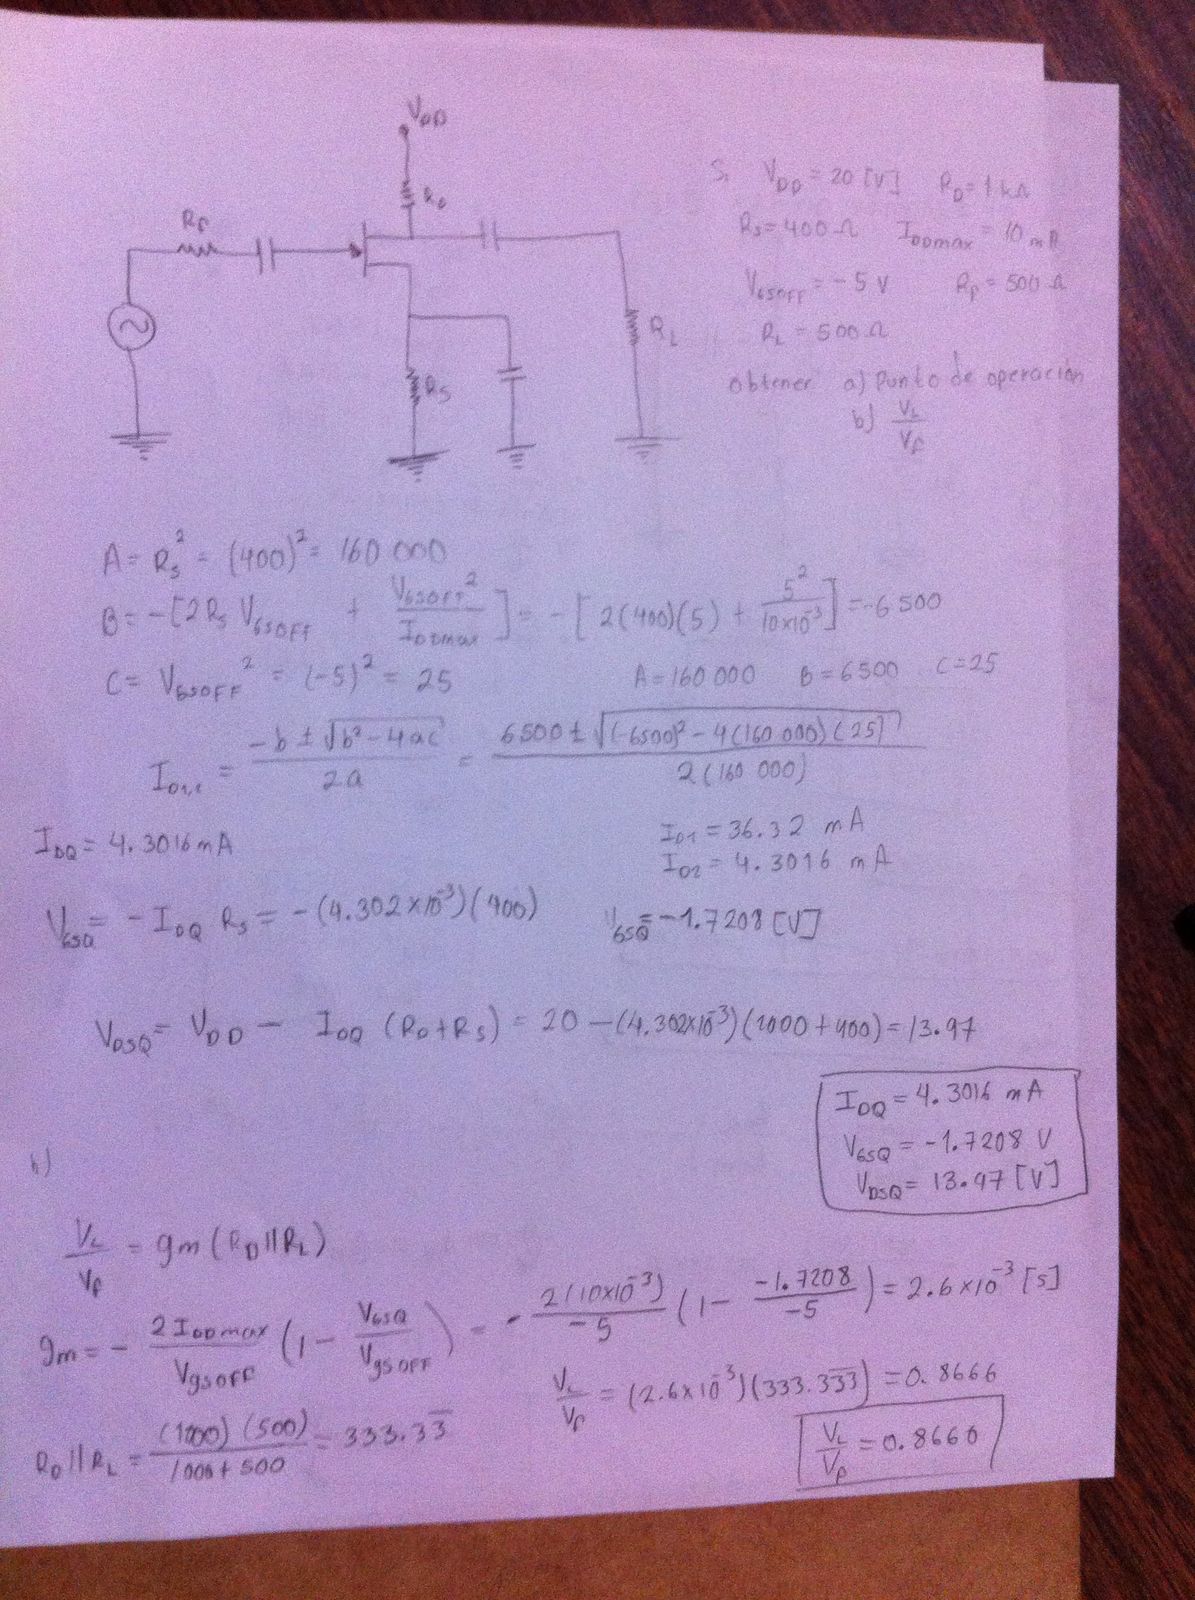 VDD
RD
Rp
RL
RS
Si VDD = 20 [V] RD = 1 kΩ
Rs = 400 Ω IDDmax = 10 mA
VGSOFF = - 5 V Rp = 500 Ω
RL = 500 Ω
obtener a) Punto de operación
b) VL/Vp
A = Rs² = (400)² = 160 000
B = -[2Rs VGSOFF + VGSOFF²/IDDmax] = -[2(400)(5) + 5²/10x10⁻³] = -6 500
C = VGSOFF² = (-5)² = 25 A = 160 000 B = 6500 C = 25
ID1,2 = (-b ± √(b² - 4ac))/2a = (6500 ± √((-6500)² - 4(160 000)(25)))/2(160 000)
ID1 = 36.32 mA
IDQ = 4.3016 mA ID2 = 4.3016 mA
VGSQ = - IDQ RS = -(4.302x10⁻³)(400) VGSQ = -1.7208 [V]
VDSQ = VDD - IDQ (RD+RS) = 20 - (4.302x10⁻³)(1000+400) = 13.97
IDQ = 4.3016 mA
VGSQ = -1.7208 V
VDSQ = 13.97 [V]
b)
VL/Vp = gm (RD||RL)
gm = - 2IDDmax/VgsOFF (1 - VGSQ/VgsOFF) = - 2(10x10⁻³)/-5 (1 - -1.7208/-5) = 2.6x10⁻³ [s]
RD||RL = (1000)(500)/1000+500 = 333.33 VL/Vp = (2.6x10⁻³)(333.333) = 0.8666
VL/Vp = 0.8660